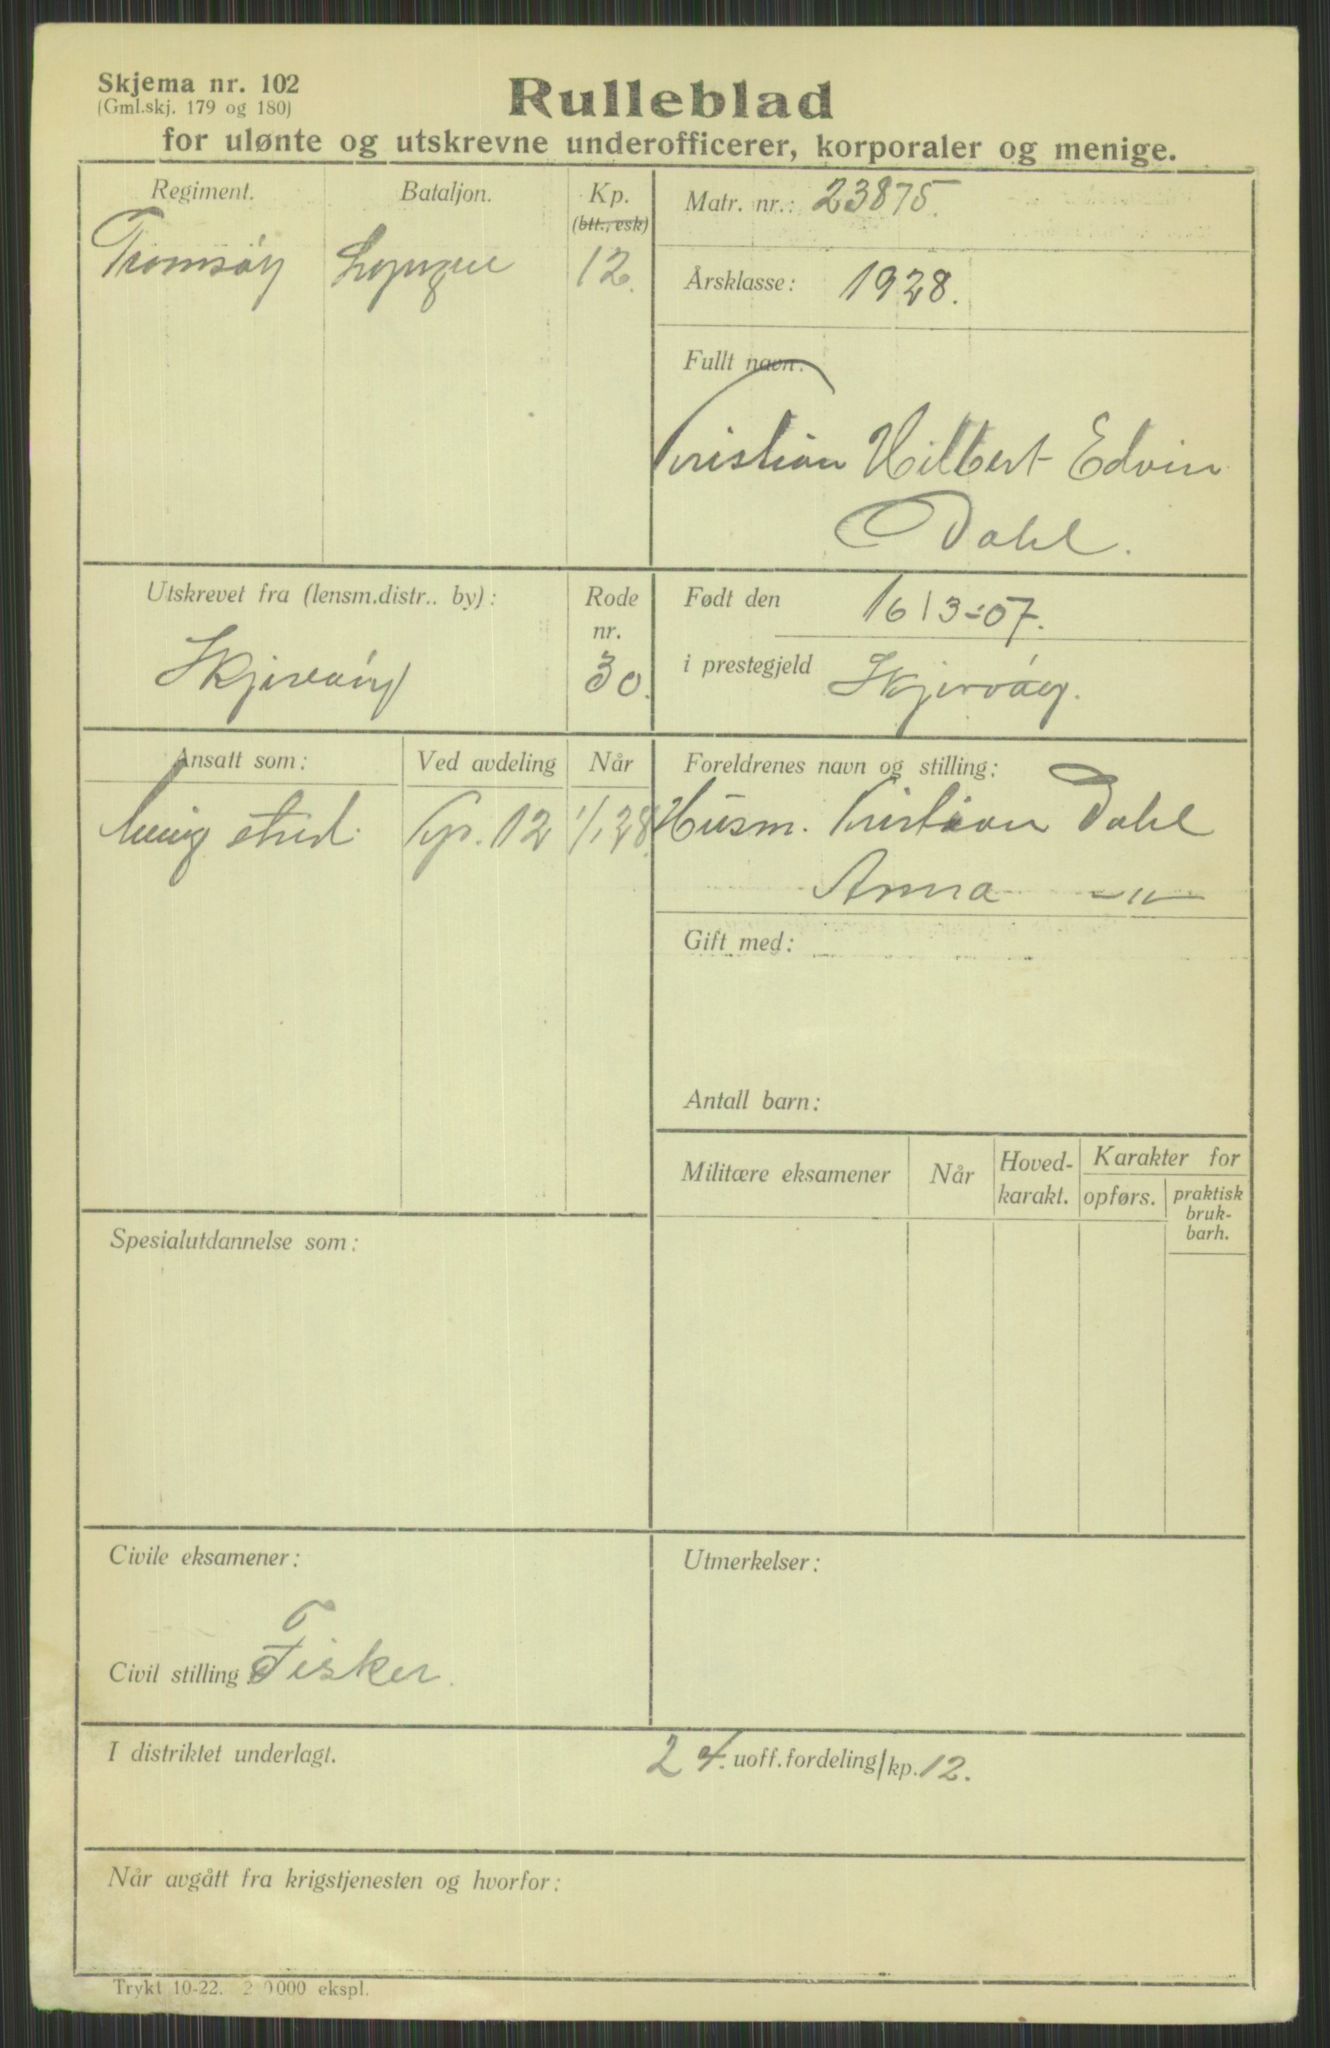 Skjema nr. 102
(Gml.skj. 179 og 180)
Rulleblad
for ulønte og utskrevne underofficerer, korporaler og menige.
Regiment.
Tromsøy
Bataljon.
Lyngen
Kp.
(btt., esk)
12.
Matr. nr.: 23875.
Årsklasse: 1928.
Fullt navn:
Kristian Hilbert Edvin
Dahl.
Utskrevet fra (lensm.distr.. by):
Skjervøy
Rode
nr.
30.
Født den 16/3-07.
i prestegjeld Skjervøy.
Ansatt som:
Menig strid.
Ved avdeling
Kp. 12
Når
1/1 28.
Foreldrenes navn og stilling:
Husm. Kristian Dahl
Anna —"—
Gift med:
Antall barn:
Militære eksamener
Når
Hoved-
karakt.
Karakter for
opførs.
praktisk
bruk-
barh.
Spesialutdannelse som:
Civile eksamener:
Civil stilling: Fisker.
Utmerkelser:
I distriktet underlagt.
24. uoff.fordeling/kp. 12.
Når avgått fra krigstjenesten og hvorfor:
Trykt 10-22. 2 0000 ekspl.